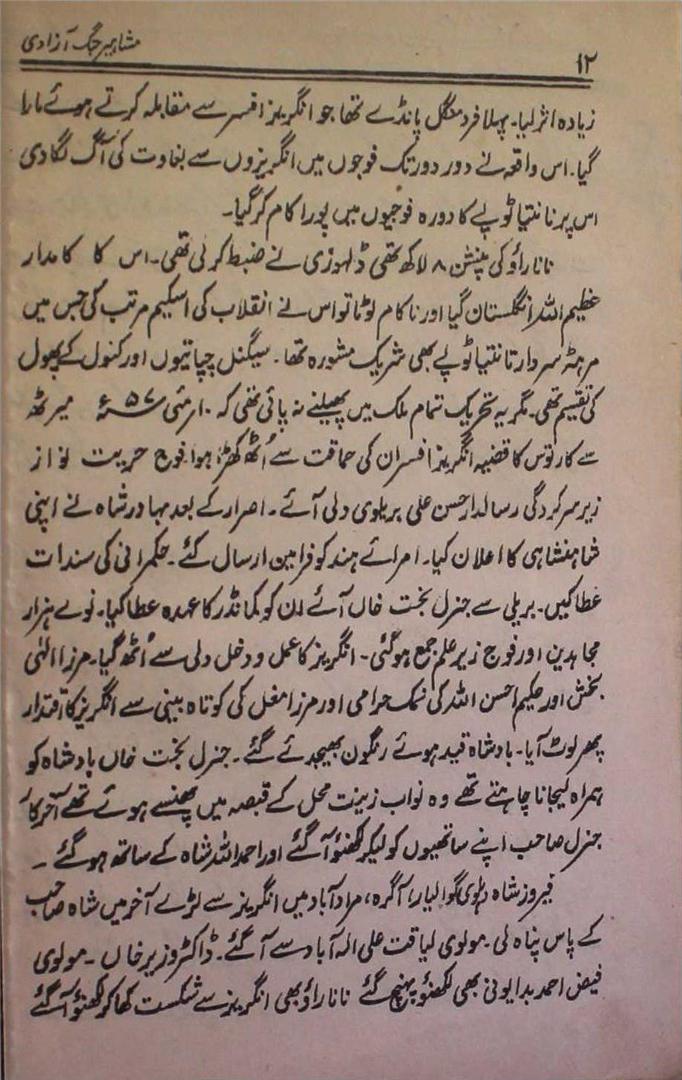 ۱۲
مشاہیر جنگ آزادی
زیادہ اثر لیا۔ پہلا فرد منگل پانڈے تھا جو انگریز افسر سے مقابلہ کرتے ہوئے مارا
گیا۔ اس واقعہ نے دور دور تک فوجوں میں انگریزوں سے بغاوت کی آگ لگا دی
اس پر تانتیا ٹوپے کا دورہ فوجیوں میں پورا کام کر گیا۔
نانا راؤ کی پنشن ۸ لاکھ تھی ڈلہوزی نے ضبط کر لی تھی۔ اس کا کامدار
عظیم اللہ انگلستان گیا اور ناکام لوٹا تو اس نے انقلاب کی اسکیم مرتب کی جس میں
مرہٹہ سردار تانتیا ٹوپے بھی شریک مشورہ تھا۔ سیگنل چپاتیوں اور کنول کے پھول
کی تقسیم تھی۔ مگر یہ تحریک تمام ملک میں پھیلنے نہ پائی تھی کہ ۱۰؍ مئی ۵۷ء میرٹھ
سے کارتوس کا قضیہ انگریز افسران کی حماقت سے اُٹھ کھڑا ہوا فوج حریت نواز
زیر سرکردگی رسالدار حسن علی بریلوی دلی آئے۔ اصرار کے بعد بہادر شاہ نے اپنی
شاہنشاہی کا اعلان کیا۔ امرائے ہند کو فرامین ارسال کئے۔ حکمرانی کی سندات
عطا کیں۔ بریلی سے جنرل بخت خاں آئے ان کو کمانڈر کا عہدہ عطا کیا۔ نوے ہزار
مجاہدین اور فوج زیر علم جمع ہو گئی۔ انگریز کا عمل و دخل دلی سے اُٹھ گیا۔ مرزا الٰہی
بخش اور حکیم احسن اللہ کی نمک حرامی اور مرزا مغل کی کوتاہ بینی سے انگریز کا اقتدار
پھر لوٹ آیا۔ بادشاہ قید ہوئے رنگون بھیجدئے گئے۔ جنرل بخت خاں بادشاہ کو
ہمراہ لیجانا چاہتے تھے وہ نواب زینت محل کے قبضہ میں پھنسے ہوئے تھے آخر کار
جنرل صاحب اپنے ساتھیوں کو لیکر لکھنؤ آ گئے اور احمد اللہ شاہ کے ساتھ ہو گئے۔
فیروز شاہ دہلوی گوالیار، آگرہ، مراد آباد میں انگریز سے لڑے آخر میں شاہ صاحب
کے پاس پناہ لی۔ مولوی لیاقت علی الہ آباد سے آ گئے۔ ڈاکٹر وزیر خاں۔ مولوی
فیض احمد بدایونی بھی لکھنؤ پہنچ گئے نانا راؤ بھی انگریز سے شکست کھا کر لکھنؤ آ گئے